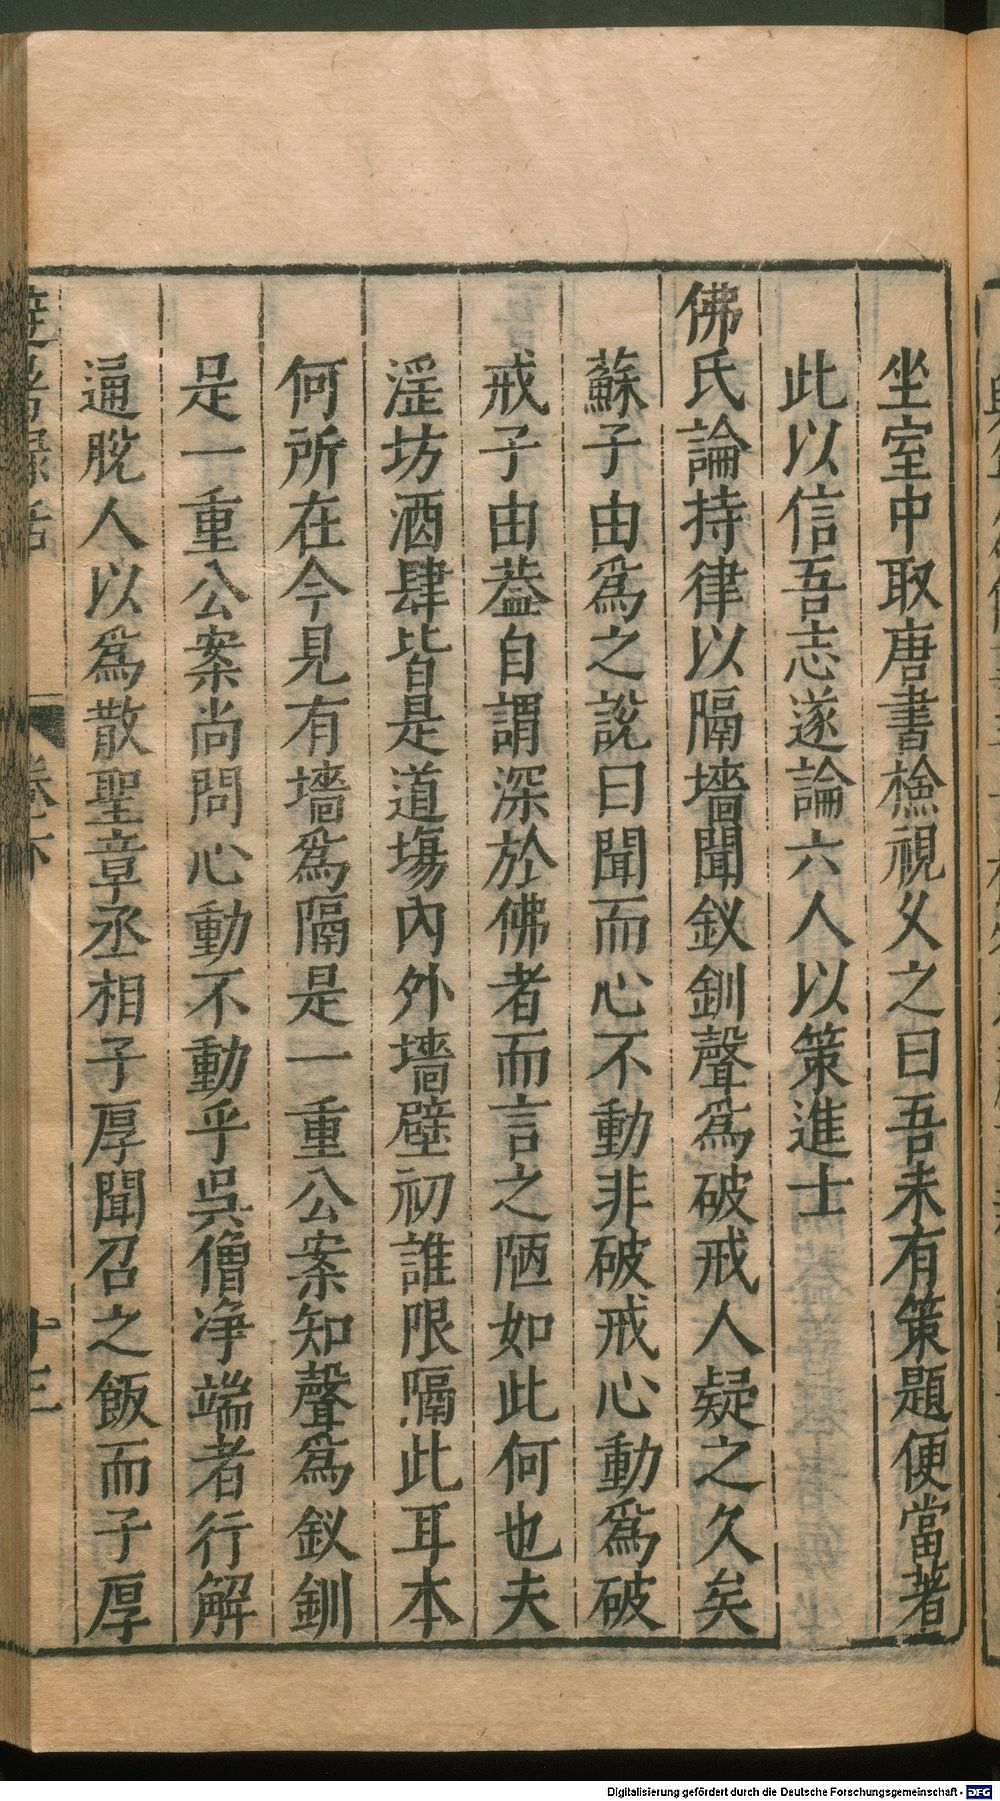 坐室中取唐書檢視久之曰吾未有策題便當著
此以信吾志遂論六人以策進士
佛氏論持律以隔墻聞釵釧聲爲破戒人疑之久矣
蘇子由爲之說曰聞而心不動非破戒心動爲破
戒子由葢自謂深於佛者而言之陋如此何也夫
淫坊酒肆皆是道塲內外墻壁初誰限隔此耳本
何所在今見有墻爲隔是一重公案知聲爲釵釧
是一重公案尚問心動不動乎吳僧净端者行解
通脫人以爲散聖章丞相子厚聞召之飯而子厚
避暑録話
卷下
十三
Digitalisierung gefördert durch die Deutsche Forschungsgemeinschaft - DFG